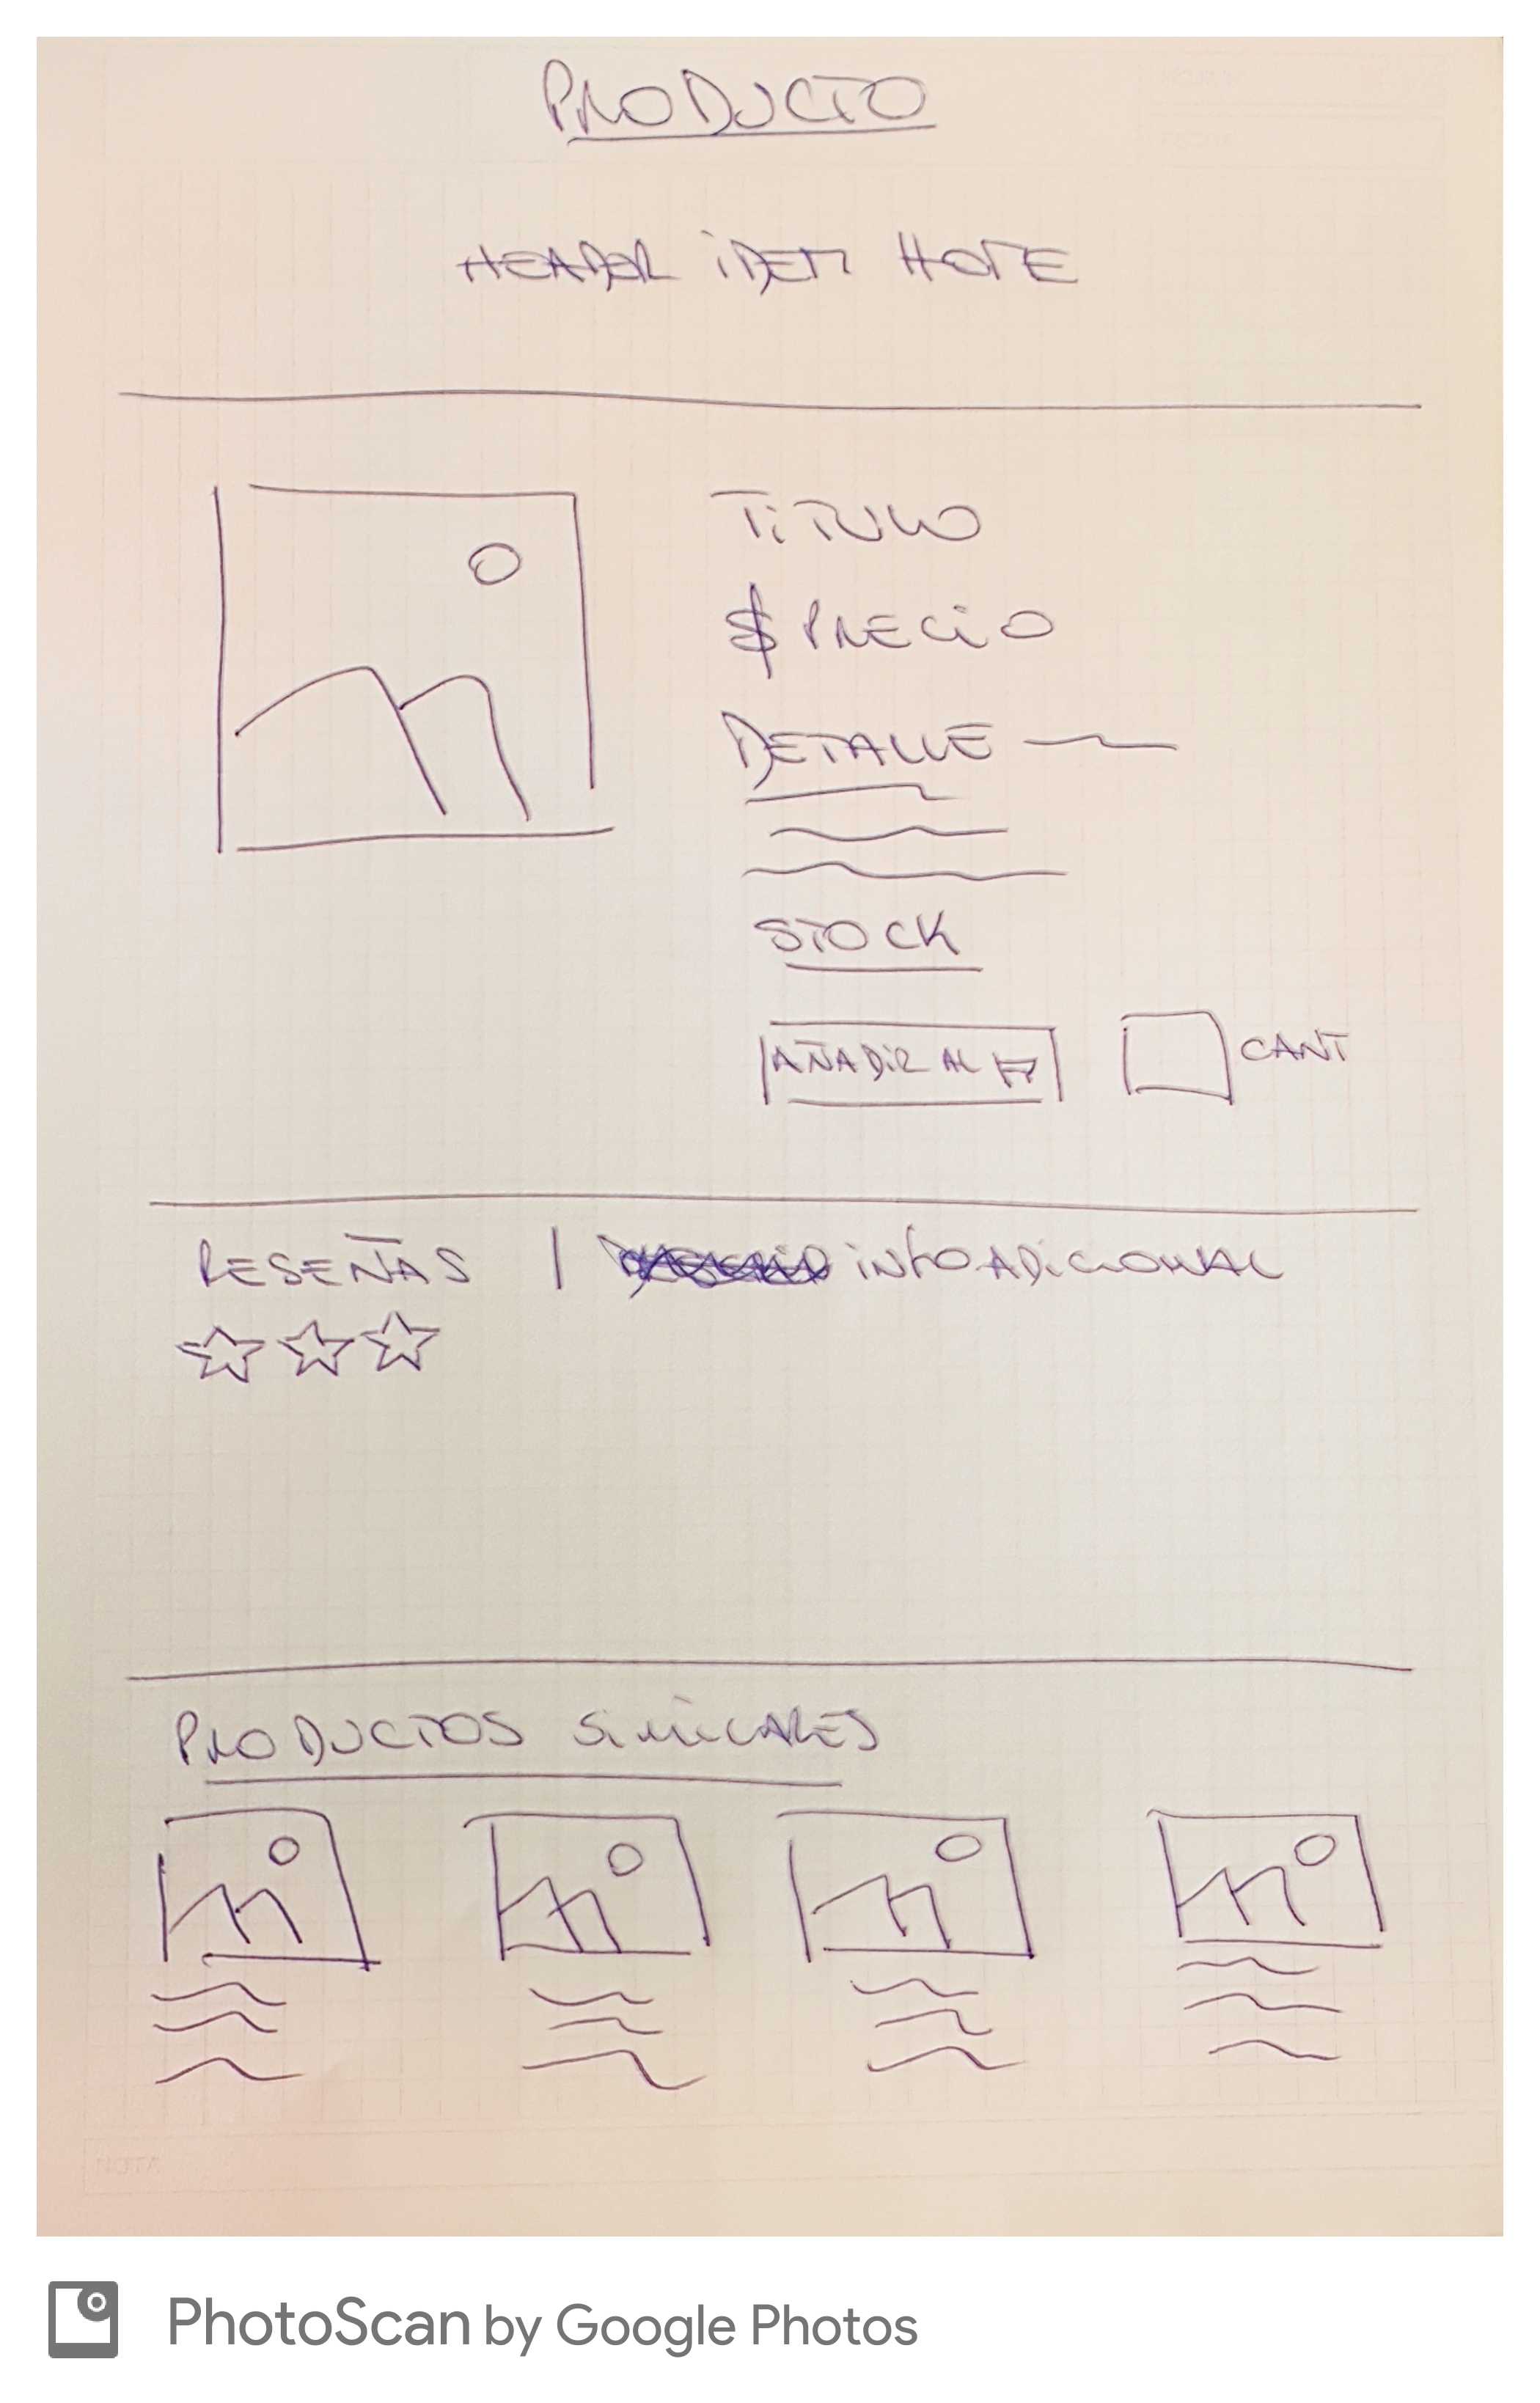 PRODUCTO
HEADER IDEM HOME
TITULO
$ PRECIO
DETALLE
STOCK
AÑADIR AL
CANT
RESEÑAS | INFO ADICIONAL
PRODUCTOS SIMILARES
PhotoScan by Google Photos